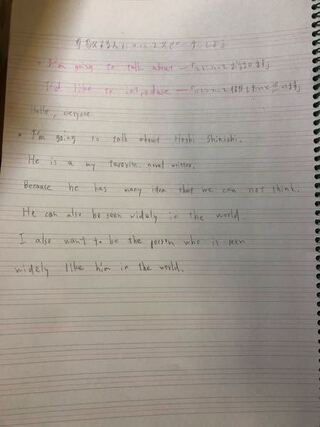 尊敬する人についてスピーチしよう
• I'm going to talk about ～「～について話します」
I'd like to introduce ～
Hello, everyone
• I'm going to talk about Hoshi Shinichi.
He is a my favorite novel writer.
Because he has many idea that we can not think.
He can also be seen widely in the world.
I also want to be the person who is seen
widely like him in the world.